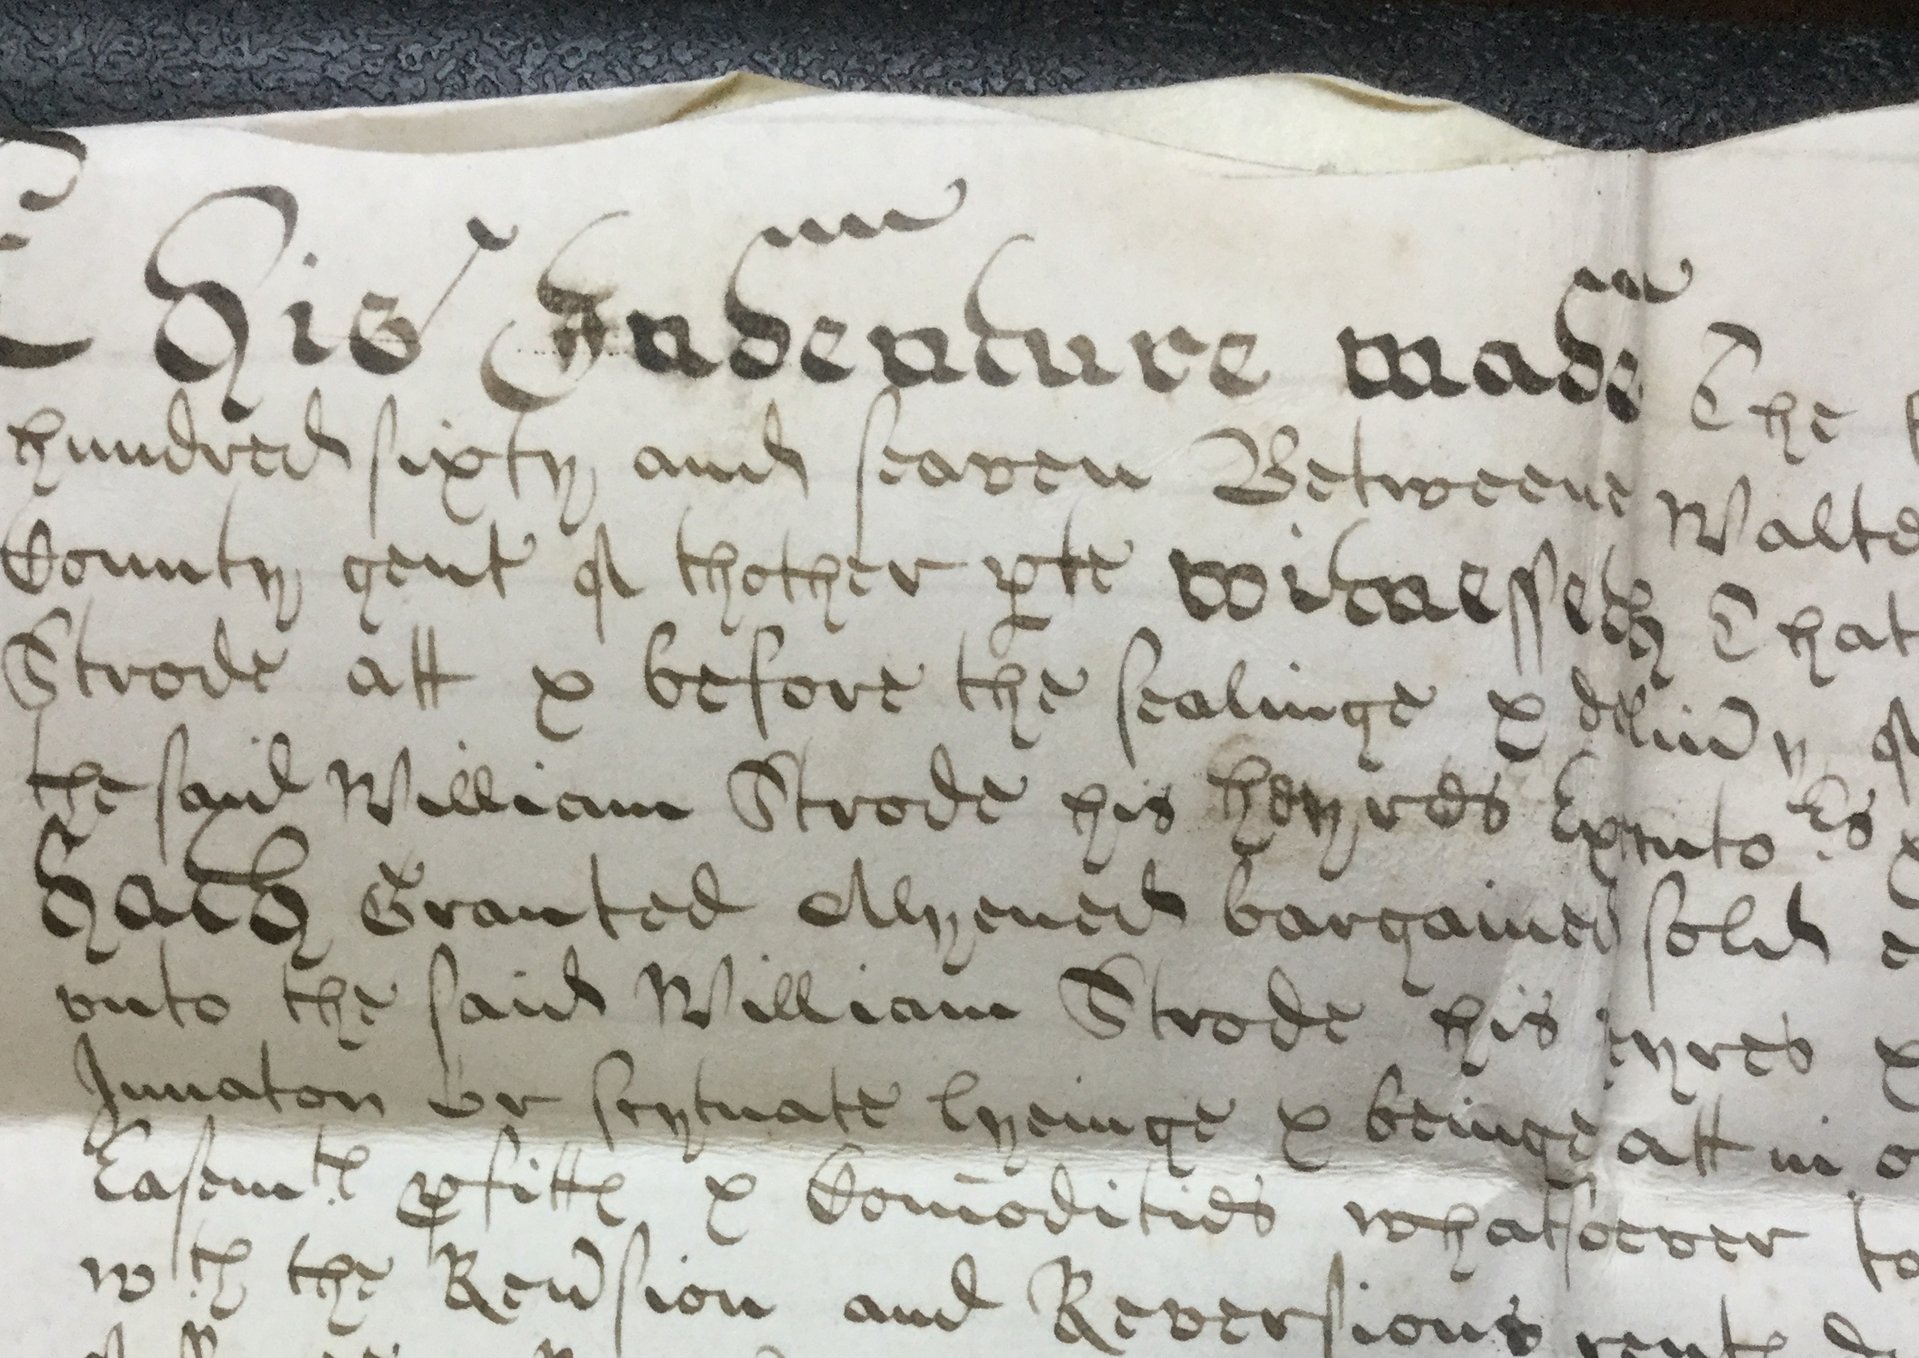 This Indenture made The
hundred sixty and seaven Betweene Walte
County gent of thother pte witnesseth That
Strode att & before the sealinge & deliuy of
the said William Strode his heyres Executo rs
hath Granted Alyened bargained sold
vnto the said William Strode his eyres &
scytuate lyeinge & beinge att in o
Easemts pfitts & Comodities whatsoever to
wth the Reusion and Reversions rents